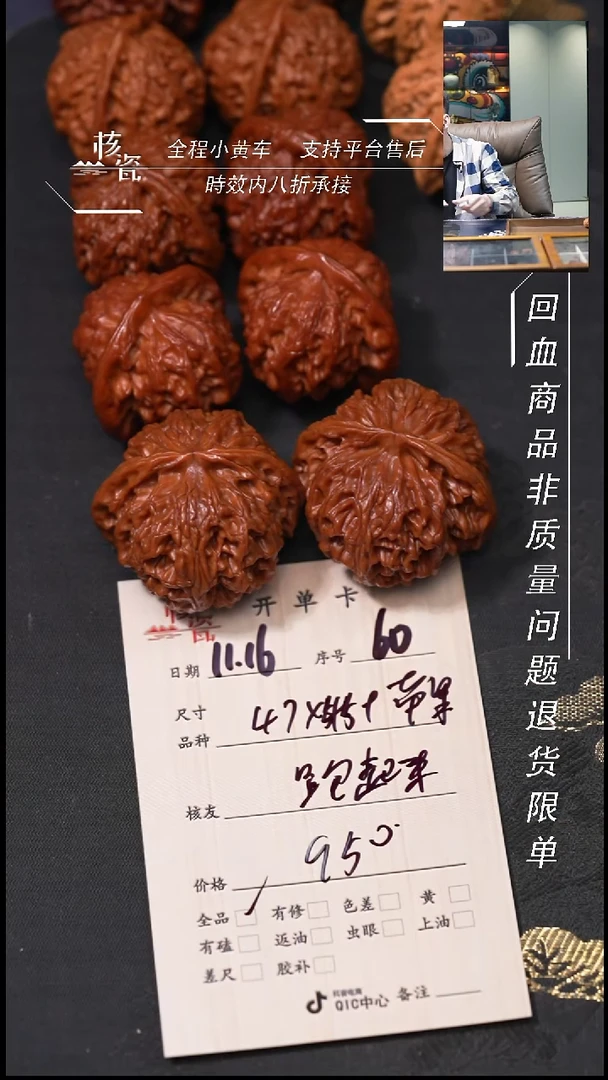 核瓷
全程小黄车 支持平台售后
時效内八折承接
回血商品非质量问题退货限单
开单卡
日期 11.16 序号 60
尺寸
品种 47
核友 跑起来
价格 950
全品 有修 色差 黄
有磕 返油 虫眼 上油
差尺 胶补
抖音电商
QIC中心 备注